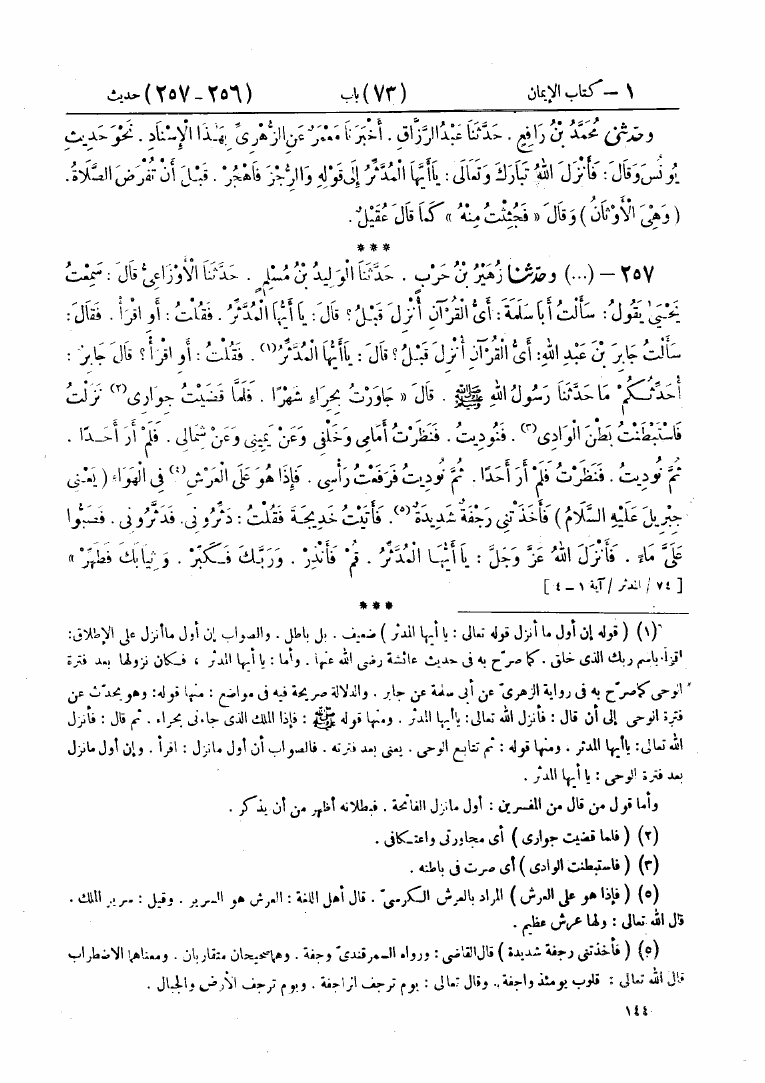 ١ – كتاب الإيمان (٧٣) باب (٢٥٦ – ٢٥٧) حديث
وحدثنى مُحَمَّدُ بْنُ رَافِعٍ . حَدَّثَنَا عَبْدُ الرَّزَّاقِ . أَخْبَرَنَا مَعْمَرٌ عَنِ الزُّهْرِىِّ بِهَذَا الْإِسْنَادِ . نَحْوَ حَدِيثِ
يُونُسَ وَقَالَ : فَأَنْزَلَ اللهُ تَبَارَكَ وَتَعَالَى : يَا أَيُّهَا الْمُدَّثِّرُ إِلَى قَوْلِهِ وَالرُّجْزَ فَاهْجُرْ . قَبْلَ أَنْ تُفْرَضَ الصَّلَاةُ .
( وَهِىَ الْأَوْثَانُ ) وَقَالَ « فَجُثِثْتُ مِنْهُ » كَمَا قَالَ عُقَيْلٌ .
***
٢٥٧ – (...) وحدثنا زُهَيْرُ بْنُ حَرْبٍ . حَدَّثَنَا الْوَلِيدُ بْنُ مُسْلِمٍ . حَدَّثَنَا الْأَوْزَاعِىُّ قَالَ : سَمِعْتُ
يَحْيَىٰ يَقُولُ : سَأَلْتُ أَبَا سَلَمَةَ : أَىُّ الْقُرْآنِ أُنْزِلَ قَبْلُ ؟ قَالَ : يَا أَيُّهَا الْمُدَّثِّرُ . فَقُلْتُ : أَوِ اقْرَأْ . فَقَالَ :
سَأَلْتُ جَابِرَ بْنَ عَبْدِ اللهِ : أَىُّ الْقُرْآنِ أُنْزِلَ قَبْلُ ؟ قَالَ : يَا أَيُّهَا الْمُدَّثِّرُ (١) . فَقُلْتُ : أَوِ اقْرَأْ ؟ قَالَ جَابِرٌ :
أُحَدِّثُكُمْ مَا حَدَّثَنَا رَسُولُ اللهِ ﷺ . قَالَ « جَاوَرْتُ بِحِرَاءٍ شَهْرًا . فَلَمَّا قَضَيْتُ جِوَارِى (٢) نَزَلْتُ
فَاسْتَبْطَنْتُ بَطْنَ الْوَادِى (٣) . فَنُودِيتُ . فَنَظَرْتُ أَمَامِى وَخَلْفِى وَعَنْ يَمِينِى وَعَنْ شِمَالِى . فَلَمْ أَرَ أَحَدًا .
ثُمَّ نُودِيتُ . فَنَظَرْتُ فَلَمْ أَرَ أَحَدًا . ثُمَّ نُودِيتُ فَرَفَعْتُ رَأْسِى . فَإِذَا هُوَ عَلَى الْعَرْشِ (٤) فِى الْهَوَاءِ ( يَعْنِى
جِبْرِيلَ عَلَيْهِ السَّلَامُ ) فَأَخَذَتْنِى رَجْفَةٌ شَدِيدَةٌ (٥) . فَأَتَيْتُ خَدِيجَةَ فَقُلْتُ : دَثِّرُونِى . فَدَثَّرُونِى . فَصَبُّوا
عَلَىَّ مَاءً . فَأَنْزَلَ اللهُ عَزَّ وَجَلَّ : يَا أَيُّهَا الْمُدَّثِّرُ . قُمْ فَأَنْذِرْ . وَرَبَّكَ فَكَبِّرْ . وَثِيَابَكَ فَطَهِّرْ »
[ ٧٤ / المدثر / آية ١ – ٤ ]
***
(١) ( قوله إن أول ما أنزل قوله تعالى : يا أيها المدثر ) ضعيف . بل باطل . والصواب إن أول ما أنزل على الإطلاق :
اقرأ باسم ربك الذى خلق . كما صرح به فى حديث عائشة رضى الله عنها . وأما : يا أيها المدثر ، فكان نزولها بعد فترة
الوحى كما صرح به فى رواية الزهرىّ عن أبى سلمة عن جابر . والدلالة صريحة فيه فى مواضع : منها قوله : وهو يحدّث عن
فترة الوحى إلى أن قال : فأنزل الله تعالى : يا أيها المدثر . ومنها قوله ﷺ : فإذا الملك الذى جاءنى بحراء . ثم قال : فأنزل
الله تعالى : يا أيها المدثر . ومنها قوله : ثم تتابع الوحى . يعنى بعد فترته . فالصواب أن أول ما نزل : اقرأ . وإن أول ما نزل
بعد فترة الوحى : يا أيها المدثر .
وأما قول من قال من المفسرين : أول ما نزل الفاتحة . فبطلانه أظهر من أن يذكر .
(٢) ( فلما قضيت جوارى ) أى مجاورتى واعتكافى .
(٣) ( فاستبطنت الوادى ) أى صرت فى باطنه .
(٥) ( فإذا هو على العرش ) المراد بالعرش الكرسىّ . قال أهل اللغة : العرش هو السرير . وقيل : سرير الملك .
قال الله تعالى : ولها عرش عظيم .
(٥) ( فأخذتنى رجفة شديدة ) قال القاضى : ورواه السمرقندىّ وجفة . وهما صحيحان متقاربان . ومعناهما الاضطراب
قال الله تعالى : قلوب يومئذ واجفة . وقال تعالى : يوم ترجف الراجفة . ويوم ترجف الأرض والجبال .
١٤٤